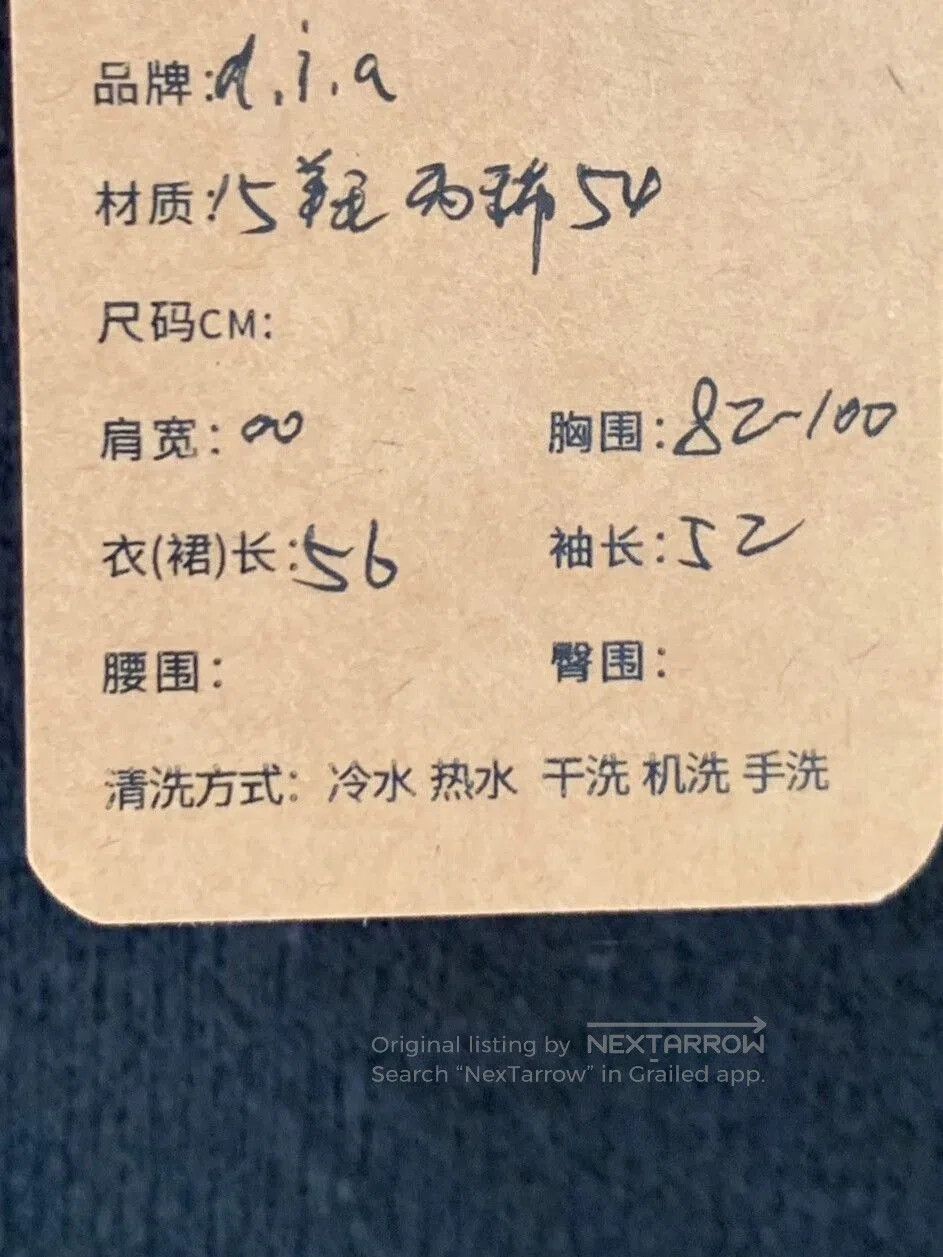 品牌:d.i.a
材质:15羊毛 丙烯54
尺码CM:
肩宽:00 胸围:82-100
衣(裙)长:56 袖长:52
腰围: 臀围:
清洗方式: 冷水 热水 干洗 机洗 手洗
Original listing by NEXTARROW
Search “NexTarrow” in Grailed app.